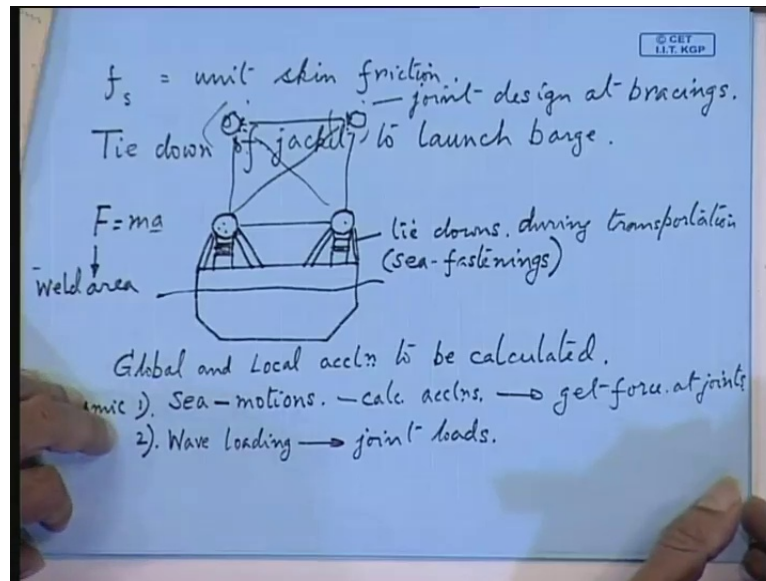 © CET
I.I.T. KGP
fs = unit skin friction.
joint design at bracings.
Tie down of jacket to launch barge.
F = ma
tie downs. during transportation
(sea-fastenings)
Weld area
Global and Local accln to be calculated.
1). Sea-motions. - calc. acclns. → get force at joints
2). Wave loading → joint loads.